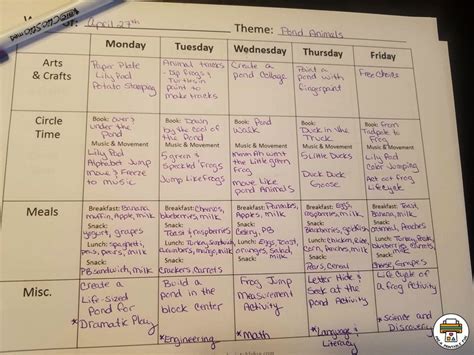 April 27th
Theme: Pond Animals
Monday Tuesday Wednesday Thursday Friday
Arts
& Crafts
Paper Plate
Lily Pad
Potato Stamping
Animal tracks
- Dip frogs &
turtles in
paint to
make tracks
Create a
pond Collage
Paint a
pond with
fingerpaint
Free Choice
Circle
Time
Book: over &
under the
Pond
Music & Movement
Lily Pad
Alphabet Jump
Move & Freeze
to music
Book: Down
by the cool of
the Pond
Music & Movement
5 green &
Speckled frogs
Jump like frogs
Book: Pond
walk
Music & Movement
went the
frog
move like
pond Animals
Book:
Duck in the
Truck
Music & Movement
5 Little Ducks
Duck Duck
Goose
Book: From
Tadpole to
Frog
Music & Movement
Lily Pad
Color Jumping
Act out frog
Lifecycle
Meals
Breakfast: Banana
muffin, Apple, milk
Snack:
yogurt, grapes
Lunch: spaghetti,
peas, pears, milk
Snack:
PB Sandwich, milk
Breakfast: Cheerios,
blueberries, milk
Snack:
Toast & raspberries
Lunch: Turkey Sandwich,
milk
Snack:
Crackers, Carrots
Breakfast: Pancakes,
Apples, milk
Snack:
Celery, PB
Lunch: Eggs, Toast,
milk
Snack:
Breakfast: Toast,
raspberries, milk
Snack:
Lunch: Chicken, Rice,
corn, milk
Snack:
Pears, Cereal
Breakfast: Eggs, Toast,
blueberries, milk
Snack:
Lunch: Turkey,
milk
Snack:
Cheese, Grapes
Misc.
Create a
Life-Sized
Pond for
Dramatic Play
Build a
pond in the
block center
*Engineering
Frog Jump
Measurement
Activity
*Math
Letter Hide &
Seek at the
pond Activity
*Language &
Literacy
Life Cycle of
a Frog Activity
*science and
Discovery